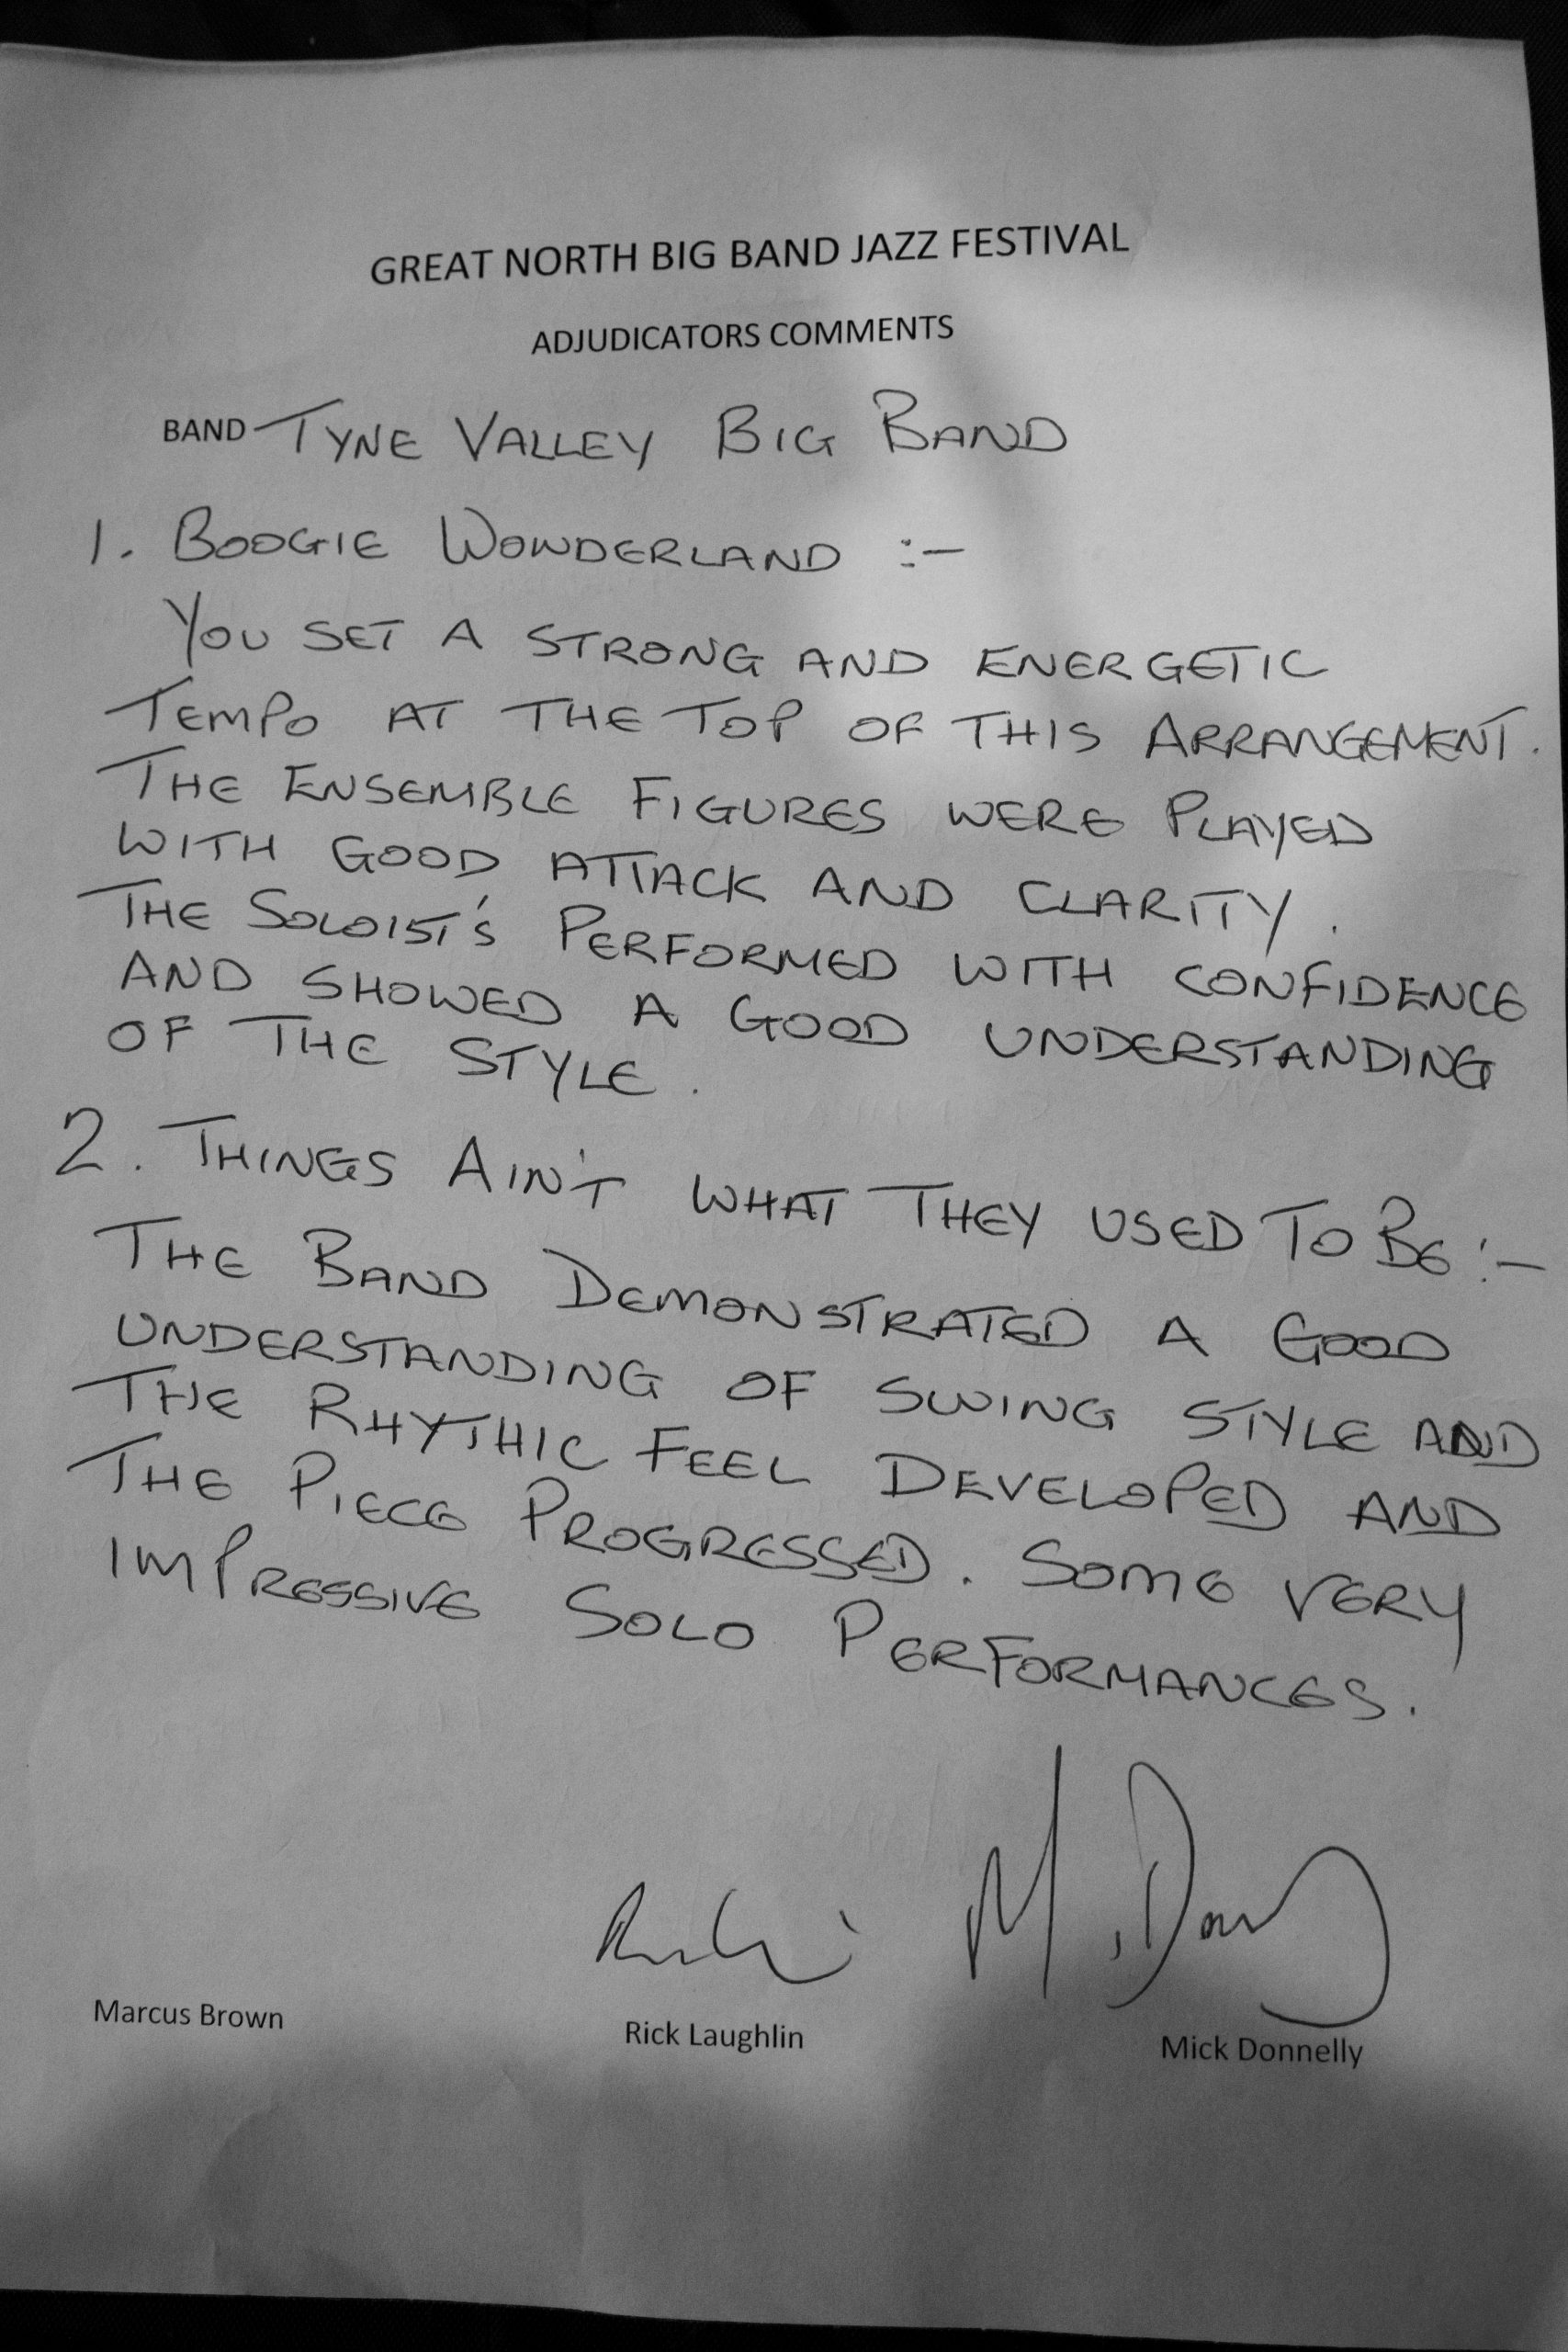 GREAT NORTH BIG BAND JAZZ FESTIVAL
ADJUDICATORS COMMENTS
BAND TYNE VALLEY BIG BAND
1. BOOGIE WONDERLAND :-
YOU SET A STRONG AND ENERGETIC
TEMPO AT THE TOP OF THIS ARRANGEMENT.
THE ENSEMBLE FIGURES WERE PLAYED
WITH GOOD ATTACK AND CLARITY.
THE SOLOIST'S PERFORMED WITH CONFIDENCE
AND SHOWED A GOOD UNDERSTANDING
OF THE STYLE.
2. THINGS AIN'T WHAT THEY USED TO BE :-
THE BAND DEMONSTRATED A GOOD
UNDERSTANDING OF SWING STYLE AND
THE RHYTHIC FEEL DEVELOPED AND
THE PIECE PROGRESSED. SOME VERY
IMPRESSIVE SOLO PERFORMANCES.
M. Donnelly
Marcus Brown Rick Laughlin Mick Donnelly